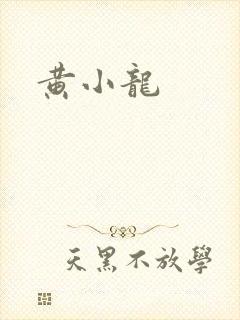 黄小龍
天黑不放學